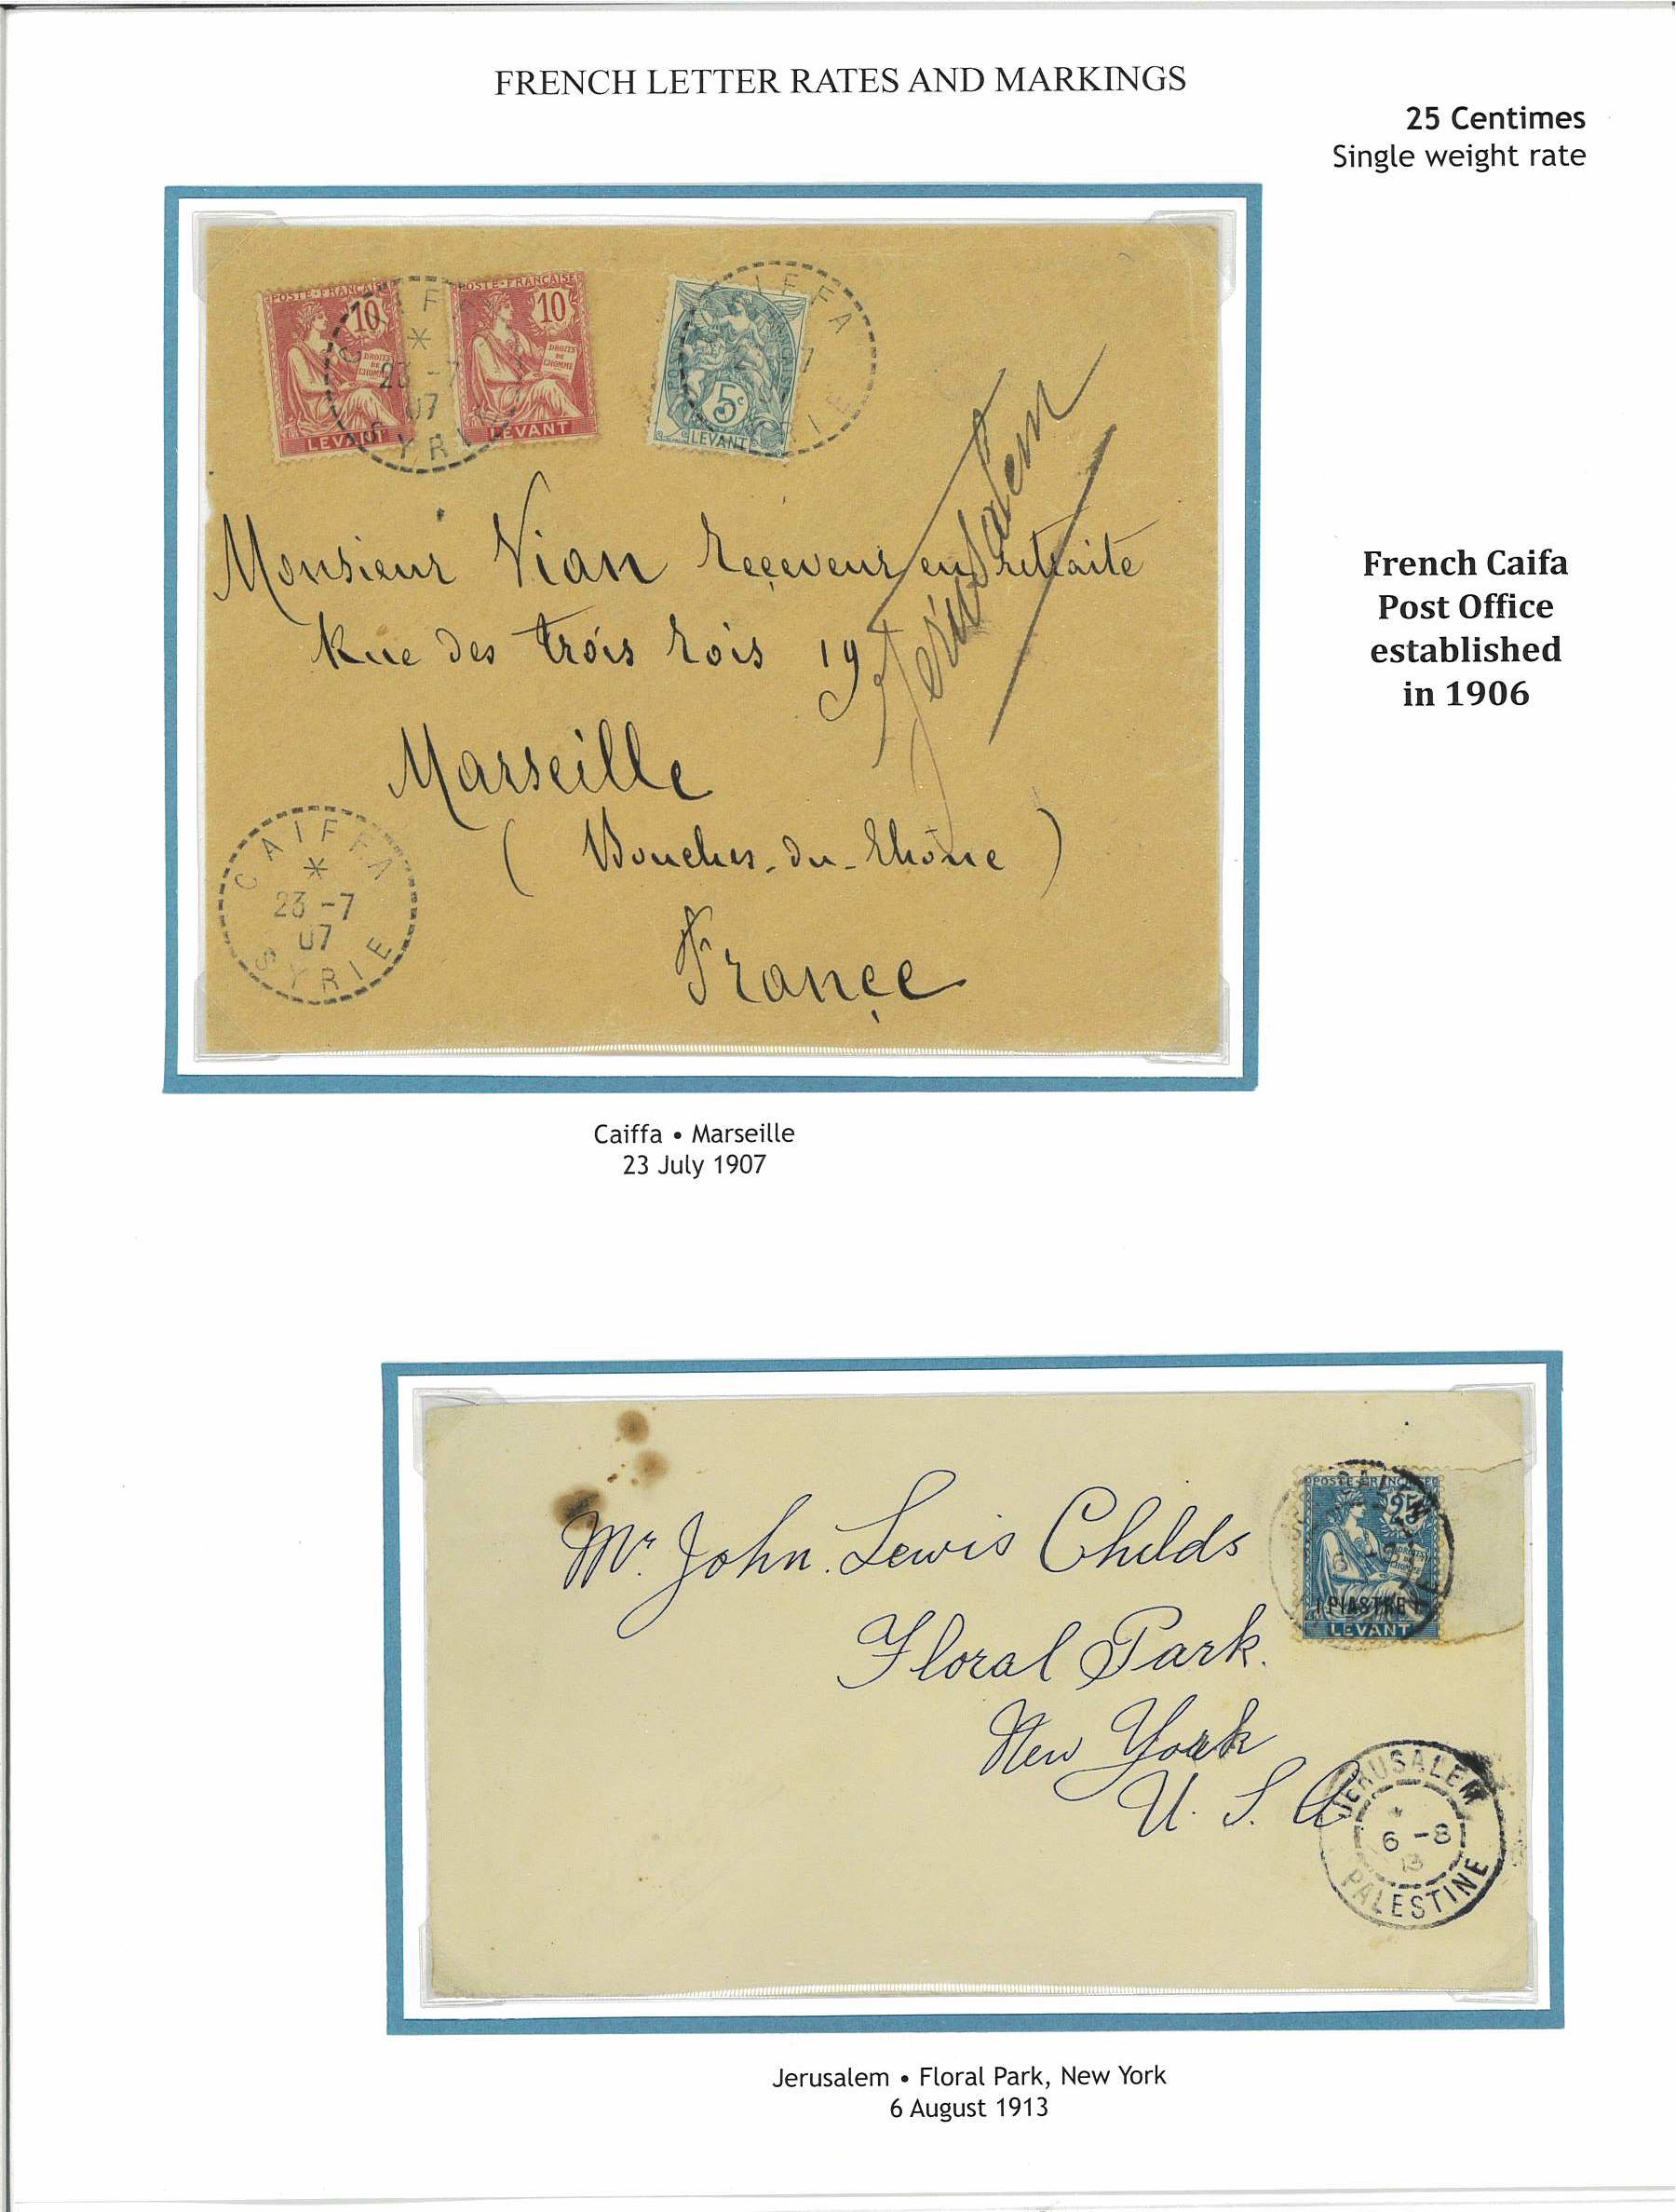 FRENCH LETTER RATES AND MARKINGS
25 Centimes
Single weight rate
POSTE·FRANÇAISE
10
DROITS DE L'HOMME
LEVANT
POSTE·FRANÇAISE
10
DROITS DE L'HOMME
LEVANT
23 -7
07
SYRIE
5c
LEVANT
Jérusalem
Monsieur Vian Receveur en retraite
Rue des trois rois 19
Marseille
(Bouches-du-Rhône)
France
CAIFFA
23 -7
07
SYRIE
French Caifa
Post Office
established
in 1906
Caiffa • Marseille
23 July 1907
POSTE·FRANÇAISE
25
DROITS DE L'HOMME
1 PIASTRE 1
LEVANT
Mr. John Lewis Childs
Floral Park.
New York
U. S. A
JERUSALEM
6 -8
13
PALESTINE
Jerusalem • Floral Park, New York
6 August 1913